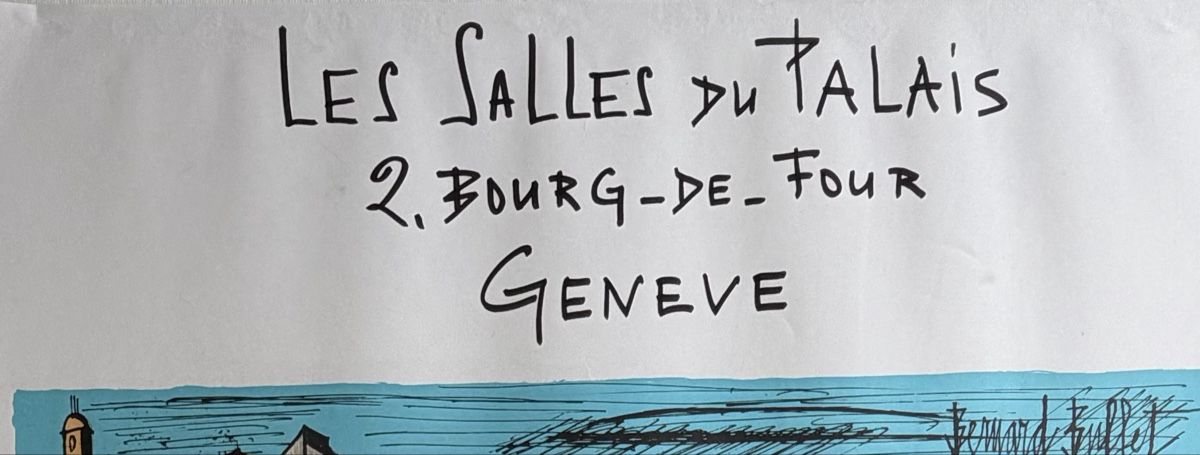 LES SALLES DU PALAiS
2. BOURG-DE-FOUR
GENEVE
Bernard Buffet